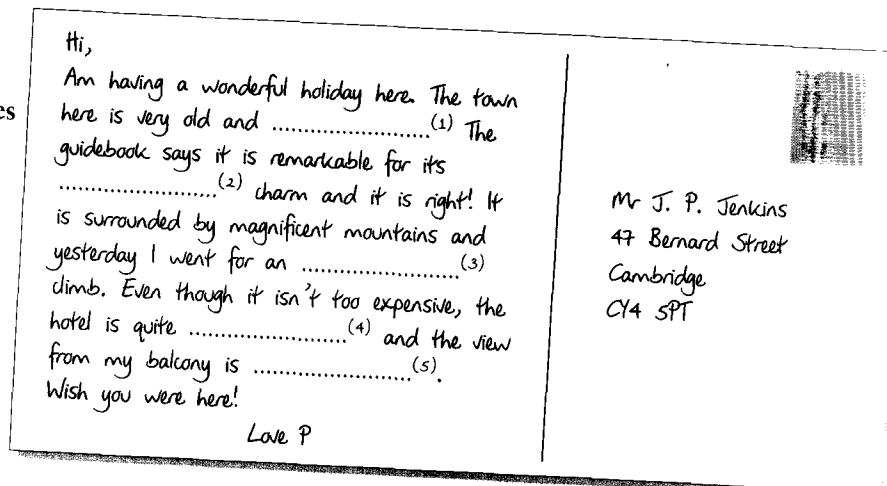 es
Hi,
Am having a wonderful holiday here. The town
here is very old and ..........................(1) The
guidebook says it is remarkable for its
..........................(2) charm and it is right! It
is surrounded by magnificent mountains and
yesterday I went for an ..........................(3)
climb. Even though it isn't too expensive, the
hotel is quite ..........................(4) and the view
from my balcony is ..........................(5).
Wish you were here!
Love P
Mr J. P. Jenkins
47 Bernard Street
Cambridge
CY4 5PT